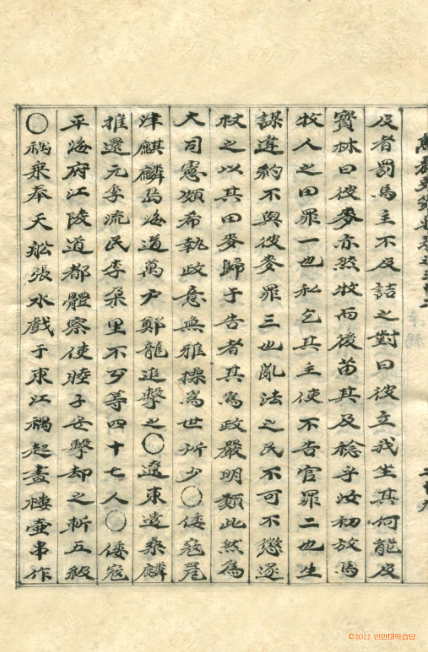 及者罰馬主不及詰之對曰彼立我坐其何能及
寶林曰彼麥亦然牧而後苗其及稔乎汝初放馬
牧人之田罪一也私乞其主使不告官罪二也生
謀違約不與彼麥罪三也亂法之民不可不懲遂
杖之以其田麥歸于告者其爲政嚴明類此然爲
大司憲頗希執政意無雅操爲世所少○倭寇瓮
津麒麟島海道萬戶鄭龍追擊之○遼東遣桑麟
推還元季流民李朶里不歹等四十七人○倭寇
平海府江陵道都體察使睦子安擊却之斬五級
○禑乘奉天船張水戲于東江禑起畫樓壺串作
©2011 인민대학습당